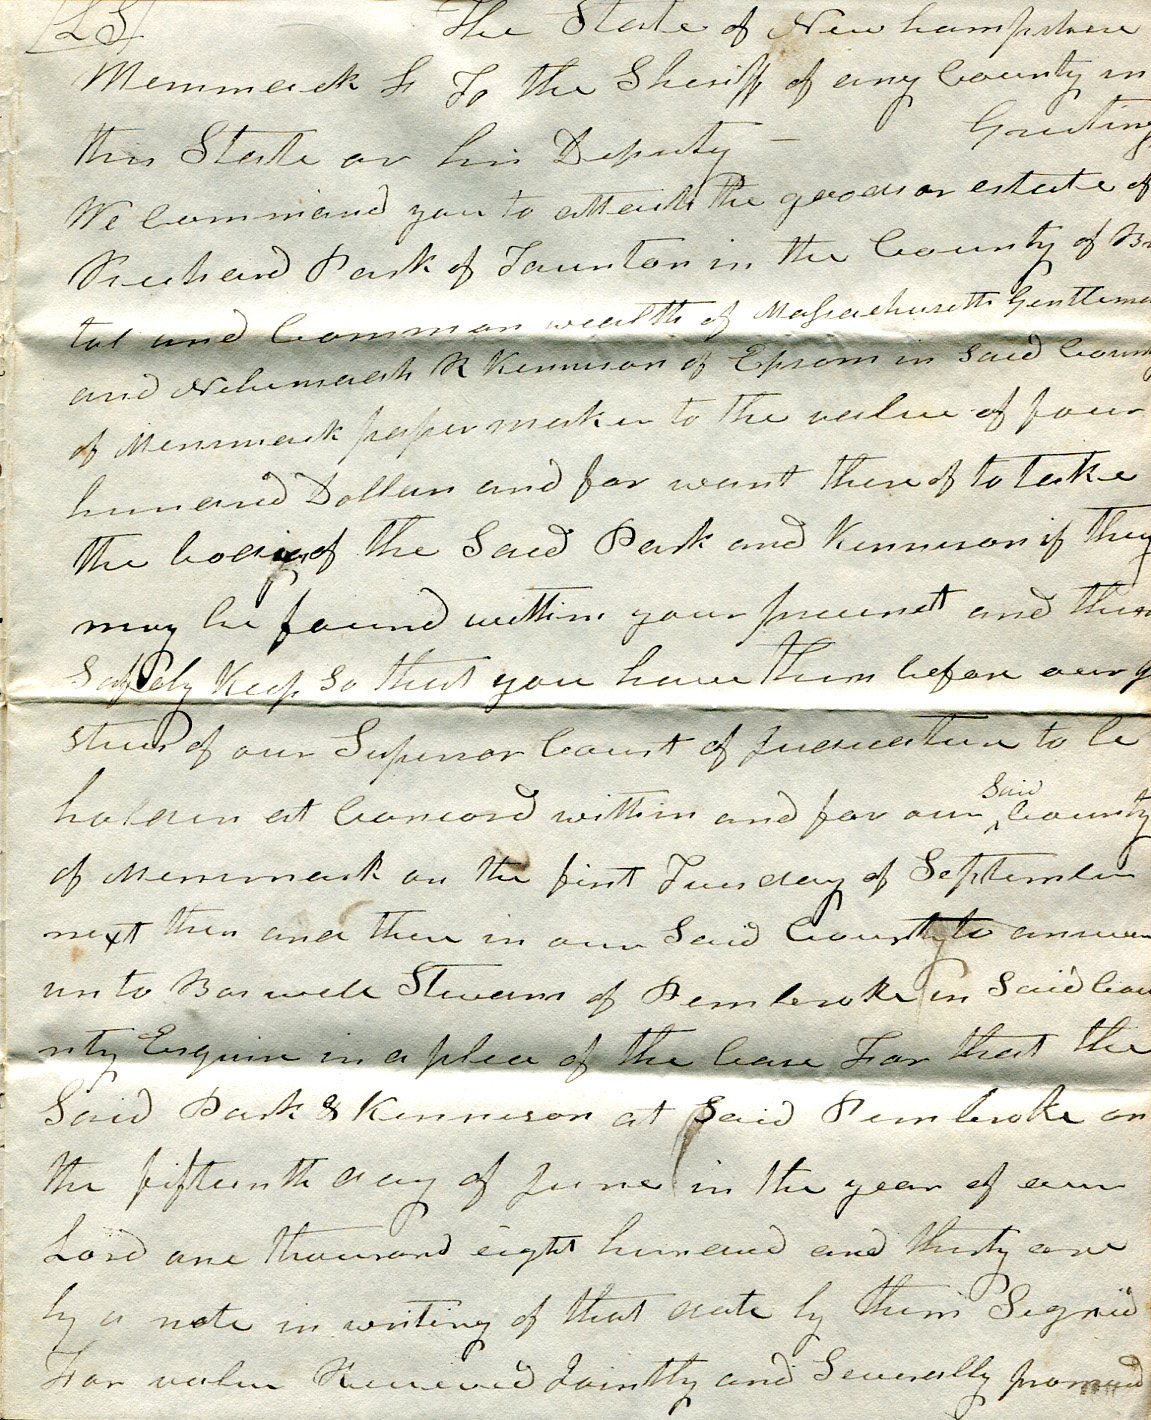 LS The State of New hampshire
Merrimack Ss To the Sheriff of any County in
this State or his Deputy — Greeting
We Command you to attach the goods or estate of
Richard Park of Taunton in the County of Bris
tol and Common wealth of Massachusetts Gentleman
and Nehemiah R Kennison of Epsom in Said County
of Merrimack paper maker to the value of four
hundred Dollars and for want there of to take
the bodies of the Said Park and Kennison if they
may be found within your precinct and them
Safely Keep So that you have them before our Ju
stices of our Superior Court of Judicature to be
holden at Concord within and for our Said County
of Merrimack on the first Tuesday of September
next then and there in our Said County to answer
unto Boswell Stevens of Pembroke in Said Cou
nty Esquire in a plea of the Case For that the
Said Park & Kennison at Said Pembroke on
the fifteenth day of June in the year of our
Lord one thousand eight hundred and thirty one
by a note in writing of that date by them Signed
For value Received Jointly and Severally promised